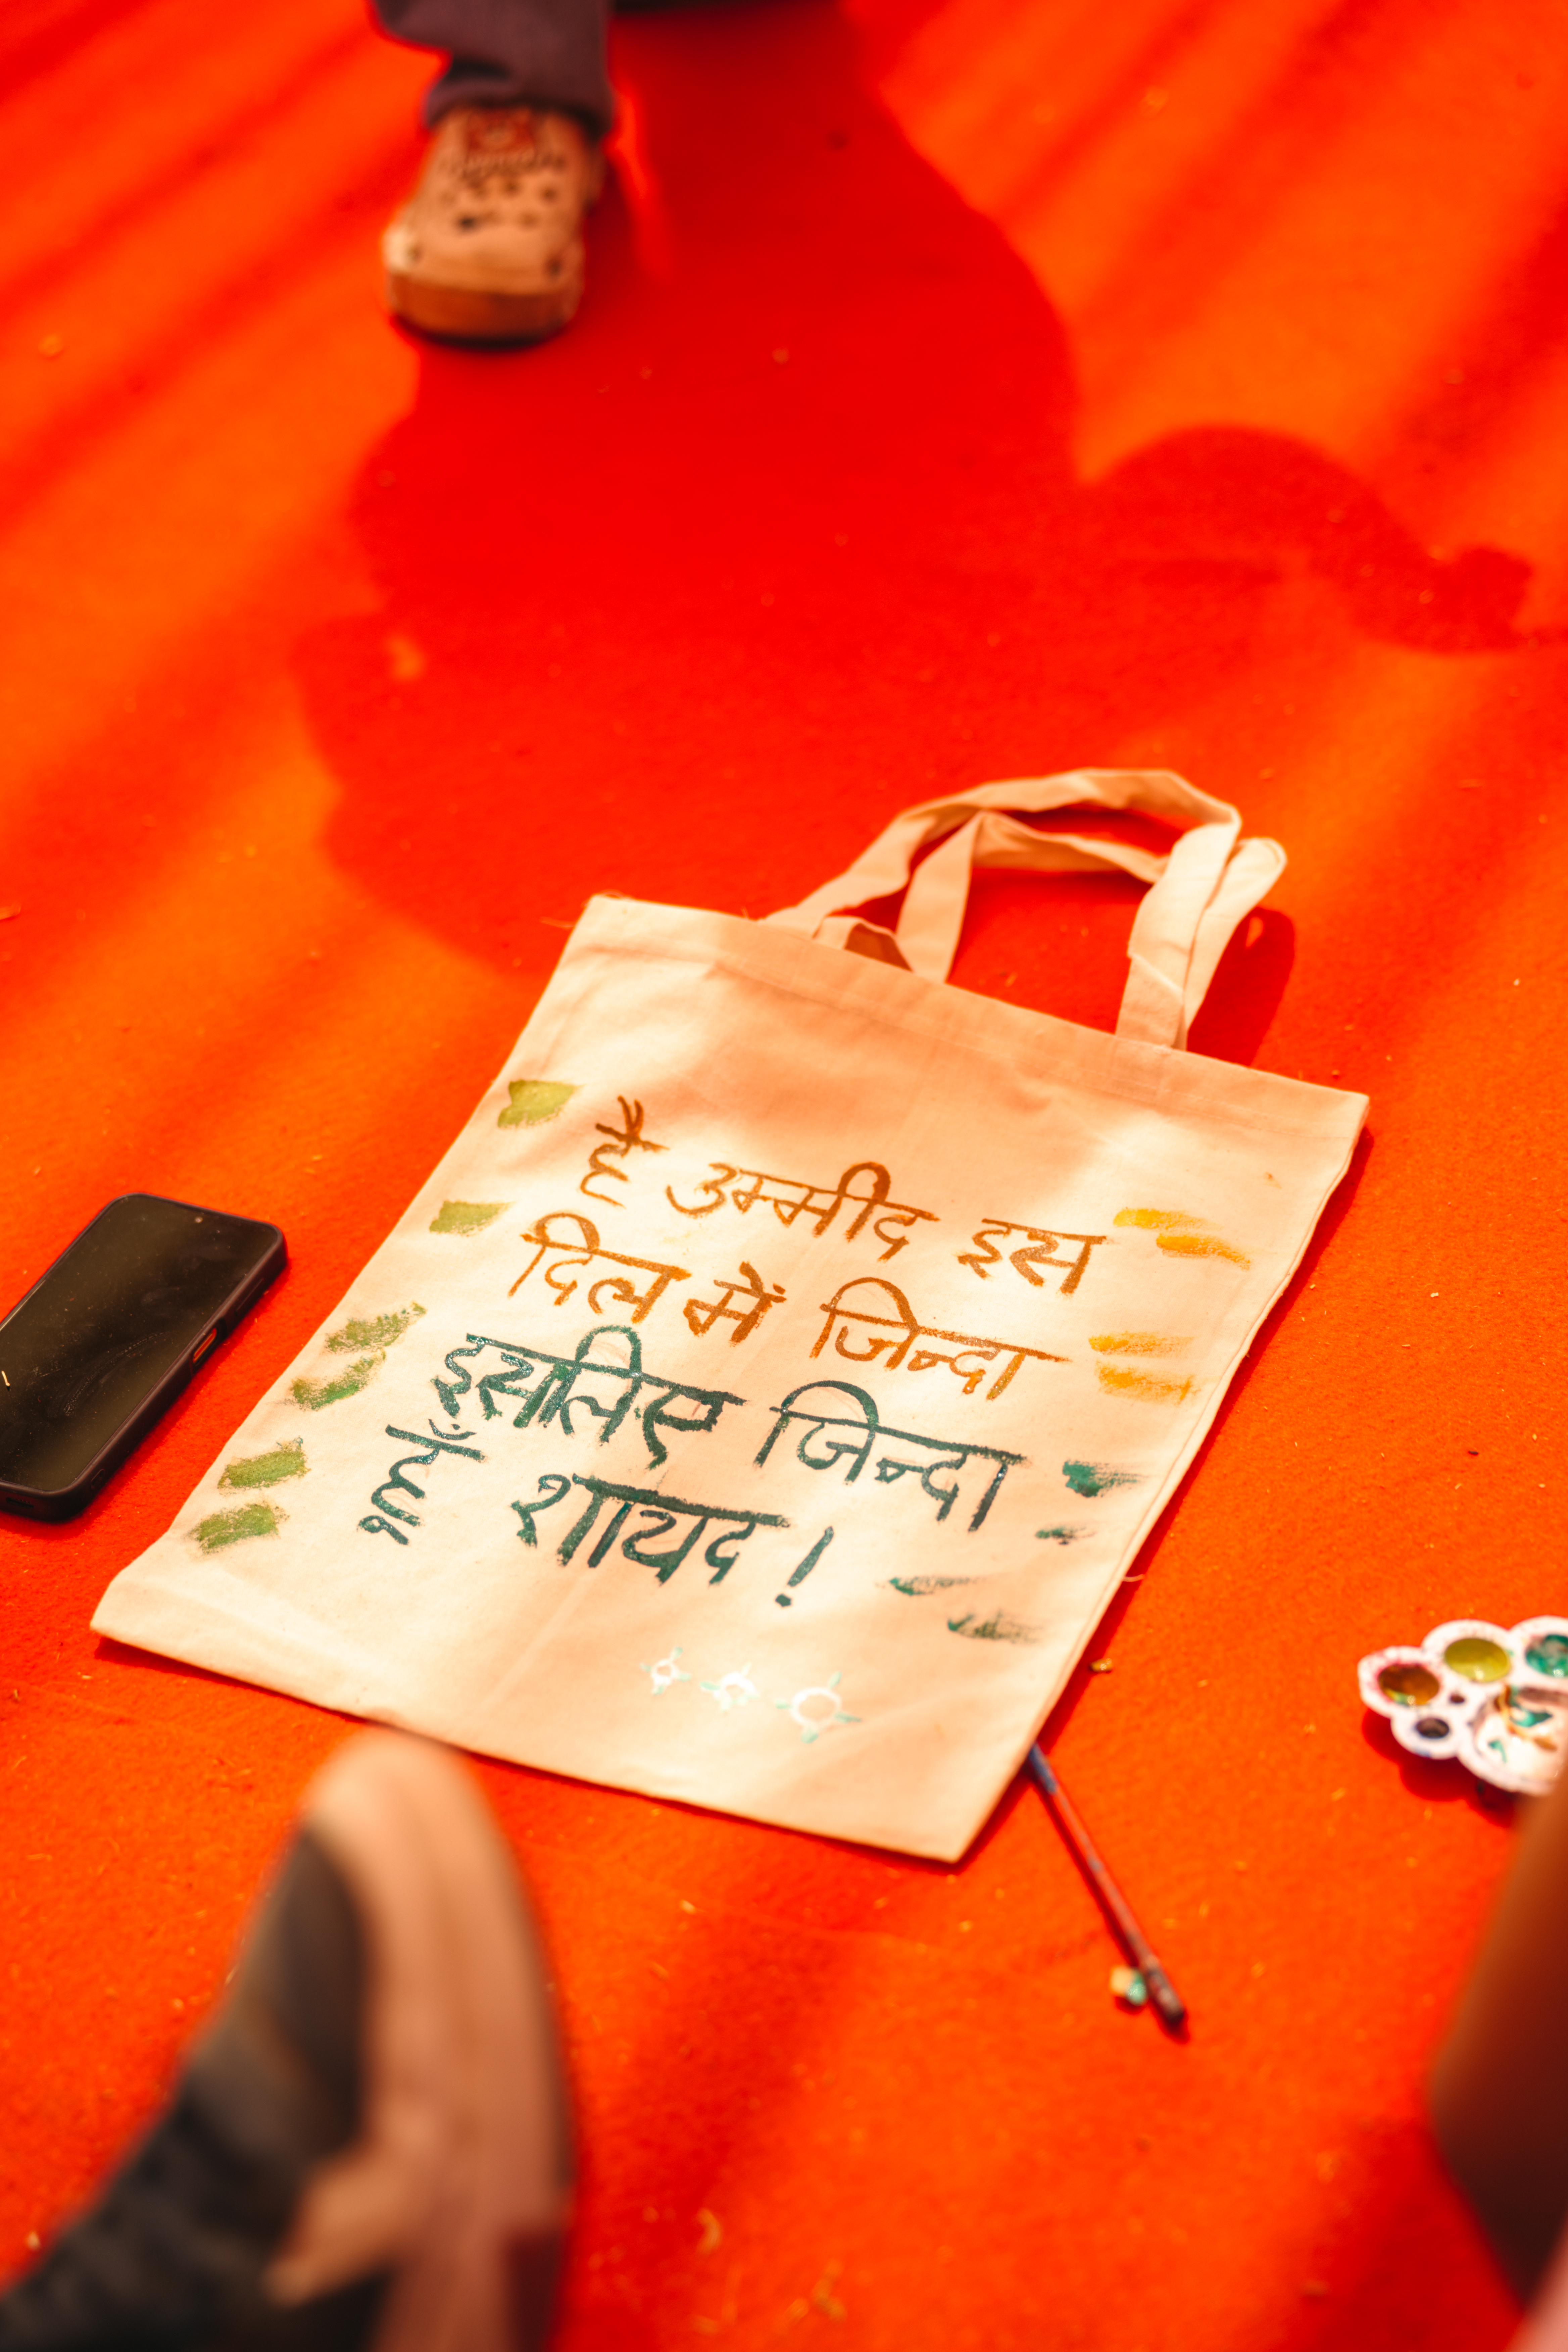 है उम्मीद इस
दिल में जिन्दा
इसलिए जिन्दा
हूँ शायद !